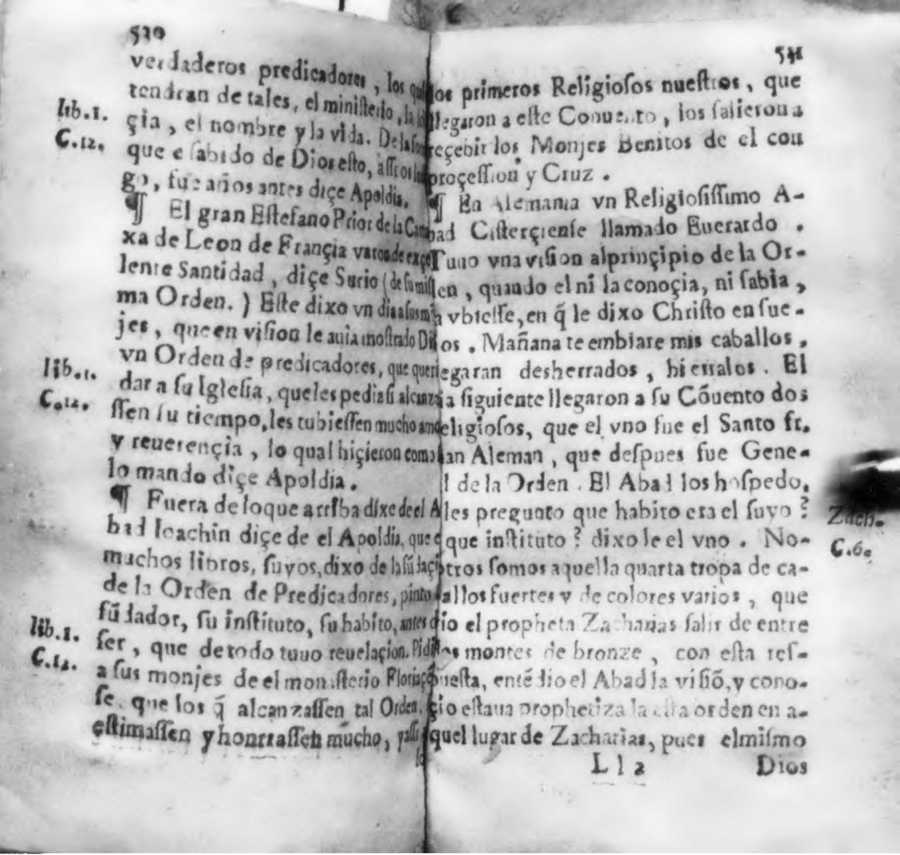 530
verdaderos predicadores, los
tendran de tales, el ministerio,
lib. 1.
çia, el nombre y la vida.
C. 12.
que e sabido de Dios esto,
go, fue años antes diçe Apoldia.
¶ El gran Estefano Prior de la
xa de Leon de Françia varon de
lente Santidad, diçe Surio (de
ma Orden.) Este dixo vn dia
jes, que en vision le auia mostrado
lib. 1.
vn Orden de predicadores, que
C. 12.
dar a su Iglesia, que les pedia si
ssen su tiempo, les tubiessen mucho
y reuerençia, lo qual hiçieron como
lo mando diçe Apoldia.
¶ Fuera de lo que arriba dixe de el A
bad Ioachin diçe de el Apoldia, que
muchos libros, suyos, dixo de la
de la Orden de Predicadores, pinto
lib. 1.
fũdador, su instituto, su habito, antes
C. 12.
ser, que de todo tuuo reuelaçion.
a sus monjes de el monisterio
se, que los q̃ alcanzassen tal Orden,
estimassen y honrrassen mucho,
531
los primeros Religiosos nuestros, que
llegaron a este Conuento, los salieron a
reçebir los Monjes Benitos de el con
proçession y Cruz.
¶ En Alemania vn Religiosissimo A-
bad Cisterçiense llamado Euerardo.
Tuuo vna vision al prinçipio de la Or-
den, quando el ni la conoçia, ni sabia,
vbiesse, en q̃ le dixo Christo en sue-
ños. Mañana te embiare mis caballos,
llegaran desherrados, hierralos. El
dia siguiente llegaron a su Cõuento dos
religiosos, que el vno fue el Santo fr.
Ian Aleman, que despues fue Gene-
l de la Orden. El Abad los hospedo,
les pregunto que habito era el suyo?
Zach.
que instituto? dixole el vno. No-
C. 6.
otros somos aquella quarta tropa de ca-
allos fuertes y de colores varios, que
vio el propheta Zacharias salir de entre
los montes de bronze, con esta res-
puesta, entẽdio el Abad la visiõ, y cono-
çio estaua prophetizada esta orden en a-
quel lugar de Zacharias, pues el mismo
Ll2 Dios